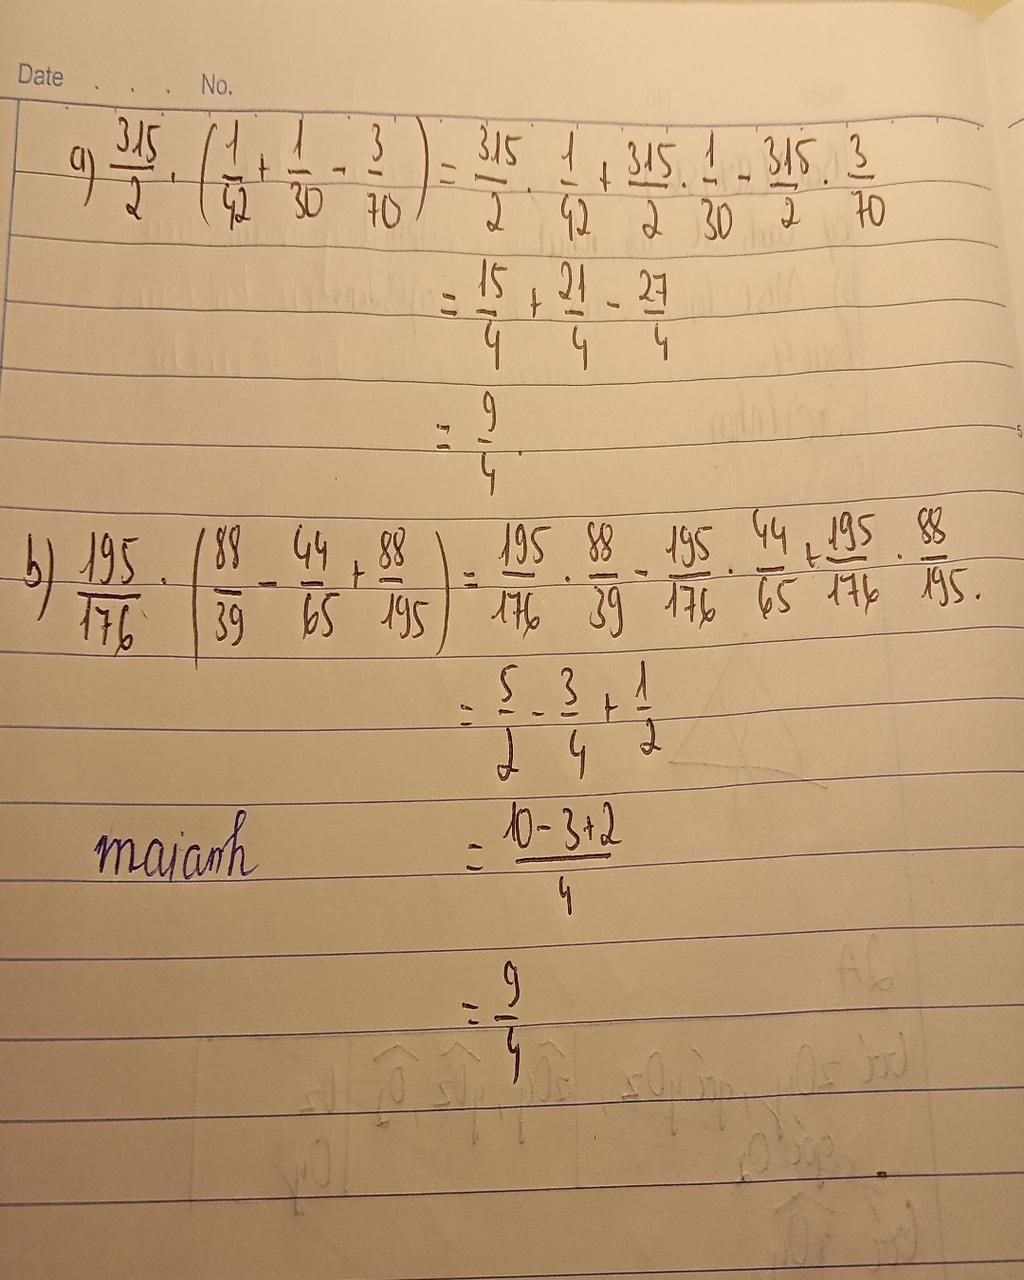 Date . . . . No.
a) 315/2 . (1/42 + 1/30 - 3/70) = 315/2 . 1/42 + 315/2 . 1/30 - 315/2 . 3/70
= 15/4 + 21/4 - 27/4
= 9/4 .
b) 195/176 . (88/39 - 44/65 + 88/195) = 195/176 . 88/39 - 195/176 . 44/65 + 195/176 . 88/195 .
= 5/2 - 3/4 + 1/2
maianh = (10 - 3 + 2)/4
= 9/4